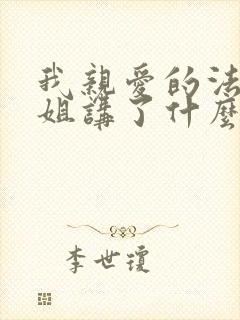 我親愛的法
姐講了什麼
李世瓊